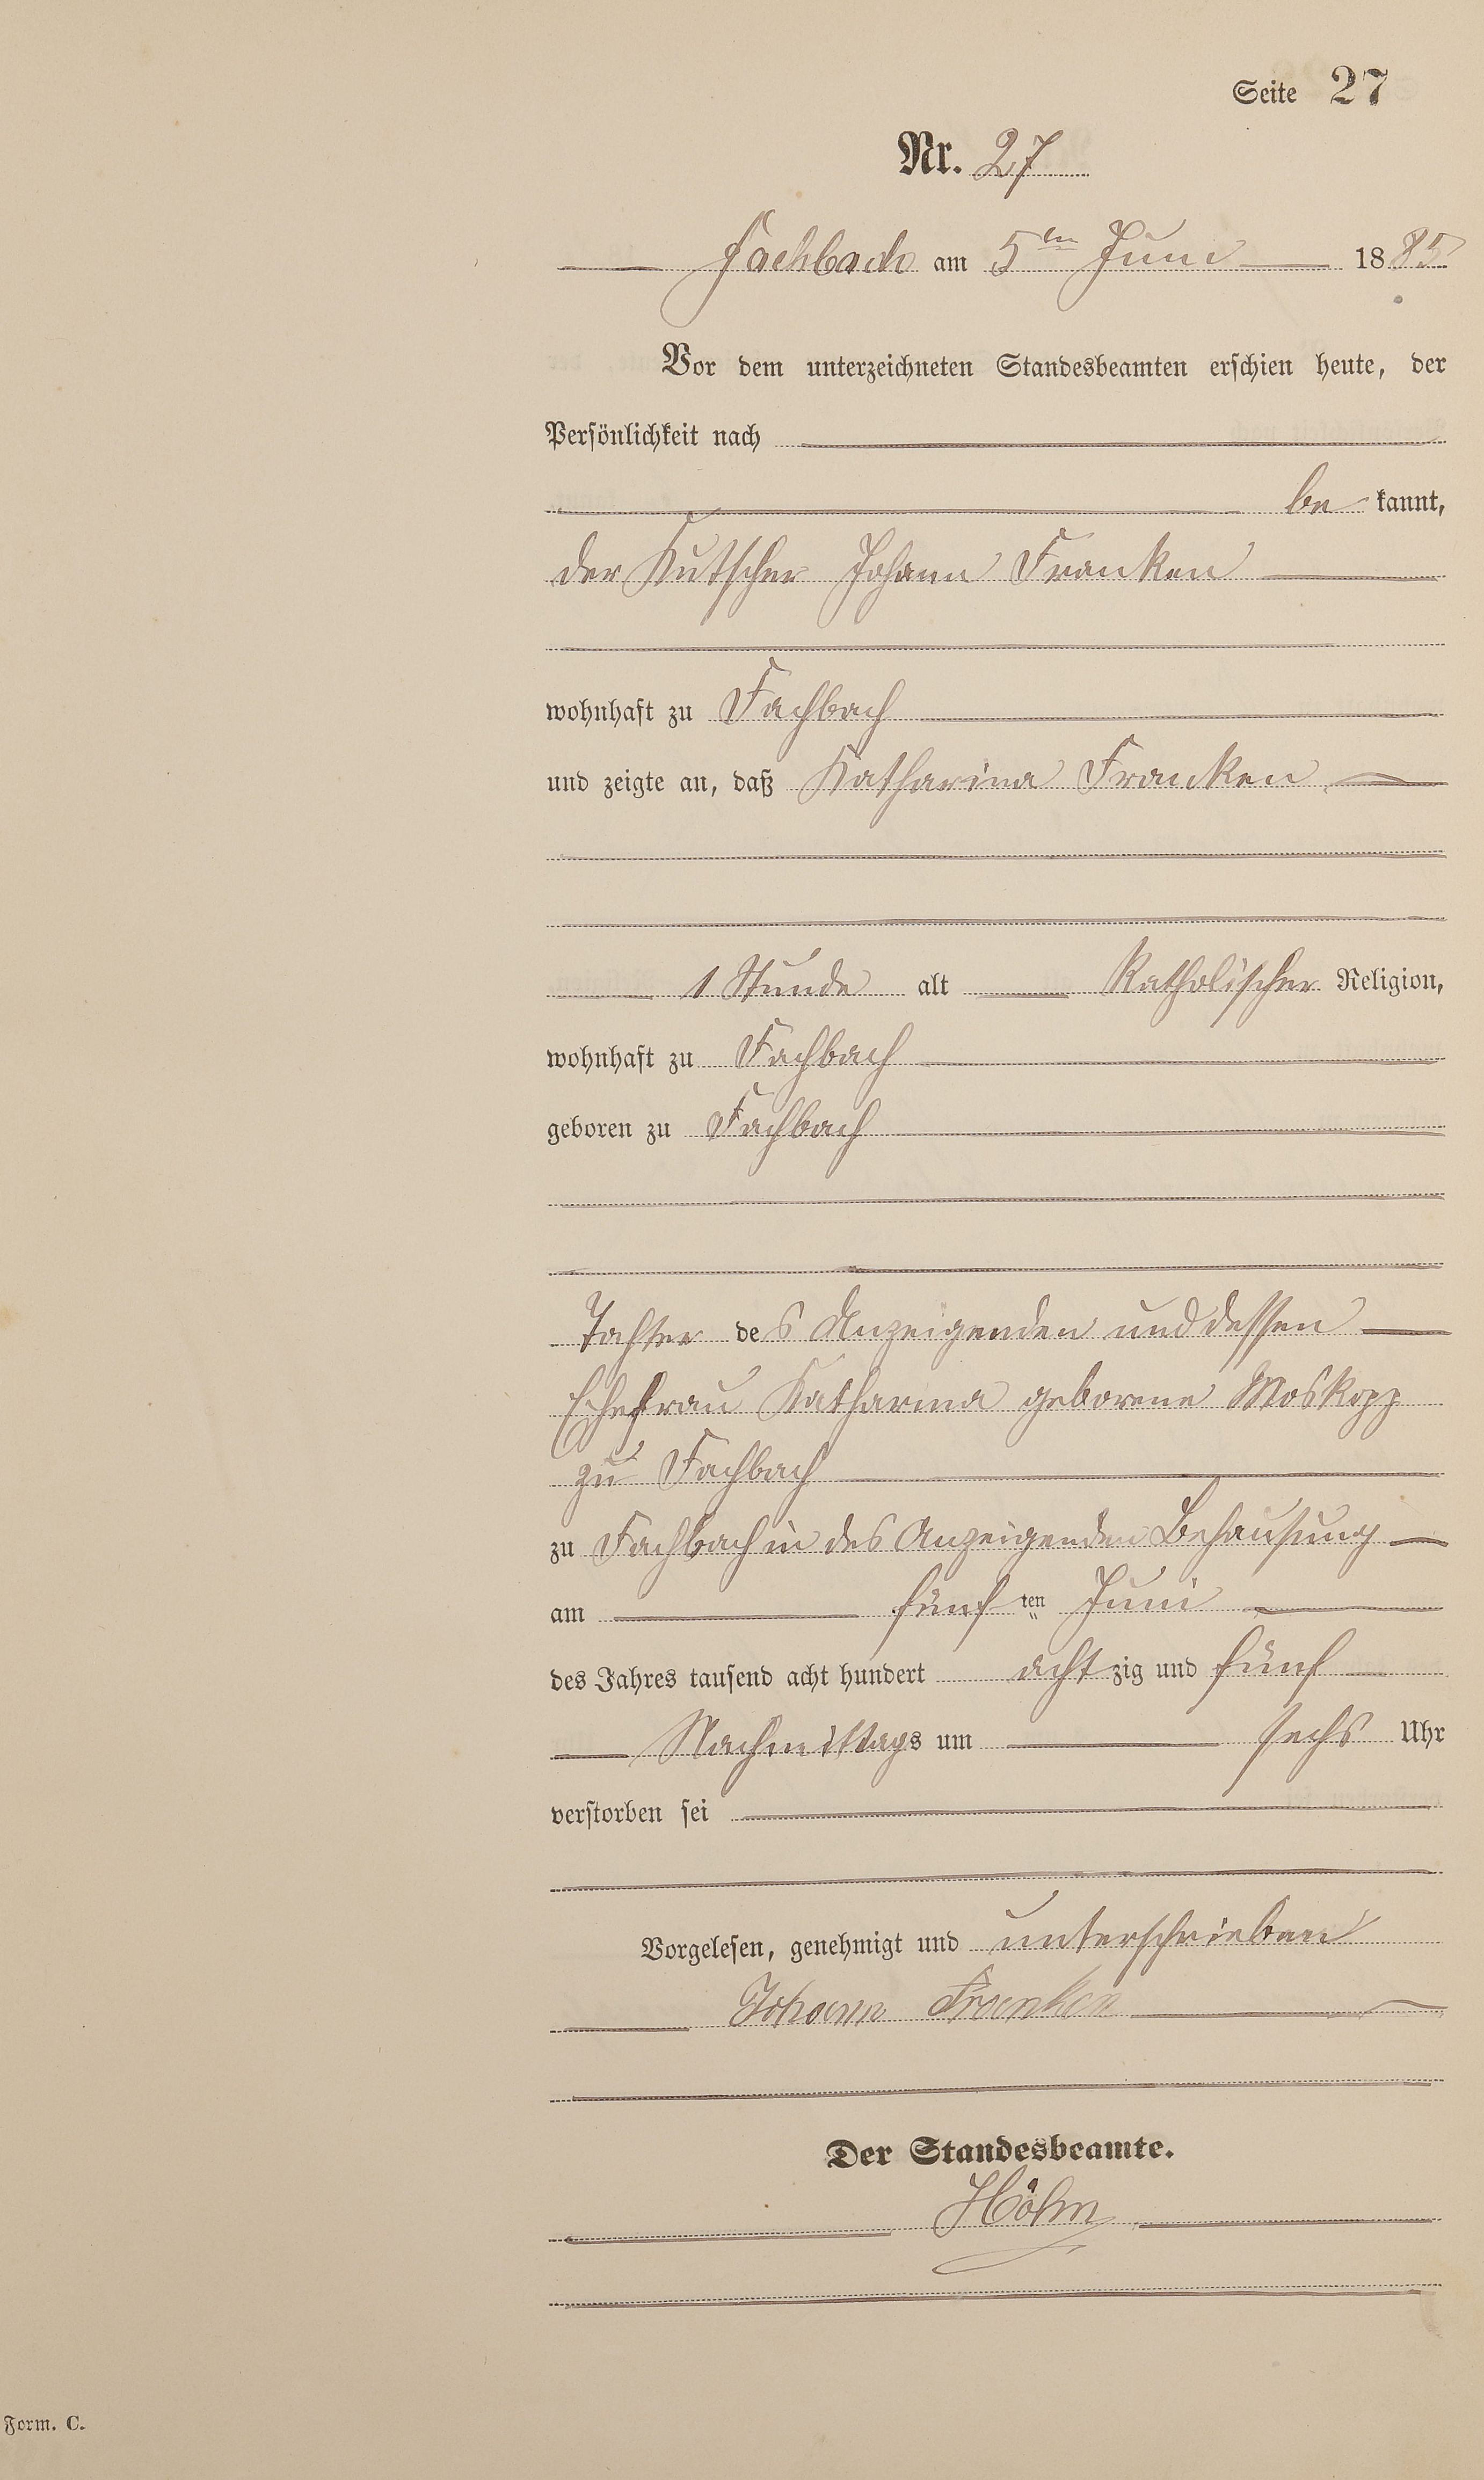 Seite 27
Nr. 27
Fachbach am 5ten Juni 1885
Vor dem unterzeichneten Standesbeamten erschien heute, der
Persönlichkeit nach
be kannt,
der Kutscher Johann Franken
wohnhaft zu Fachbach
und zeigte an, daß Katharina Franken
1 Stunde alt Katholischer Religion,
wohnhaft zu Fachbach
geboren zu Fachbach
Tochter des Anzeigenden und dessen
Ehefrau Katharina geborene Moskopp
zu Fachbach
zu Fachbach in des Anzeigenden Behausung
am fünf ten Juni
des Jahres tausend acht hundert acht zig und fünf
Nachmittags um sechs Uhr
verstorben sei
Vorgelesen, genehmigt und unterschrieben
Johann Franken
Der Standesbeamte.
Höhn
Form. C.